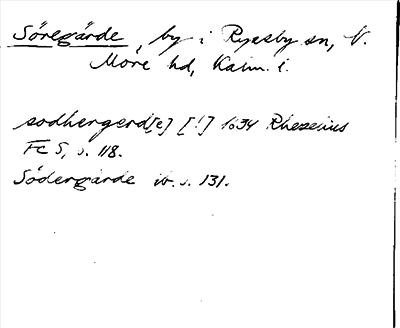 Söregärde, by i Ryssby sn, N.
Möre hd, Kalm. l.
sodhergerd[e] [!] 1634 Rhezelius
Fc 5, s. 118.
Södergärde ib. s. 131.